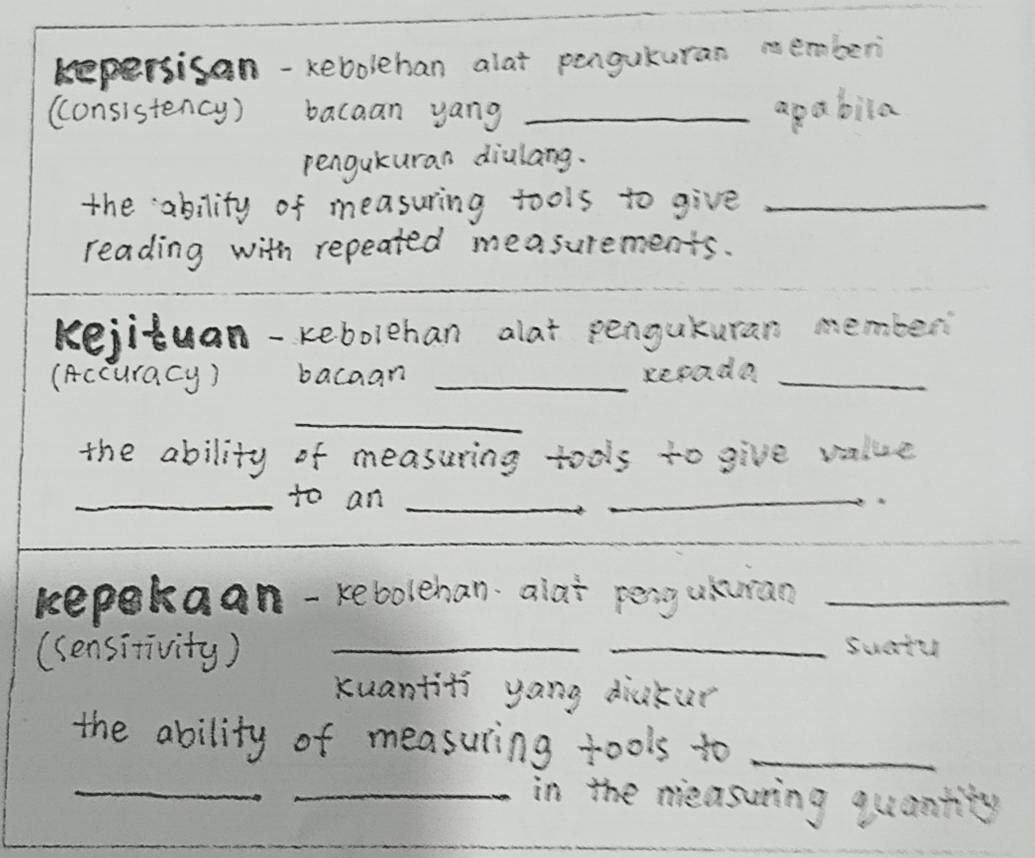 Kepersisan - kebolehan alat pengukuran memberi
(Consistency) bacaan yang __________ apabila
pengukuran diulang.
the ability of measuring tools to give __________
reading with repeated measurements.
Kejituan - kebolehan alat pengukuran memberi
(Accuracy) bacaan __________ kepada __________
__________
the ability of measuring tools to give value
__________ to an __________ __________.
Kepekaan - kebolehan alat pengukuran __________
(Sensitivity) __________ __________ suatu
kuantiti yang diukur
the ability of measuring tools to __________
__________ __________ in the measuring quantity